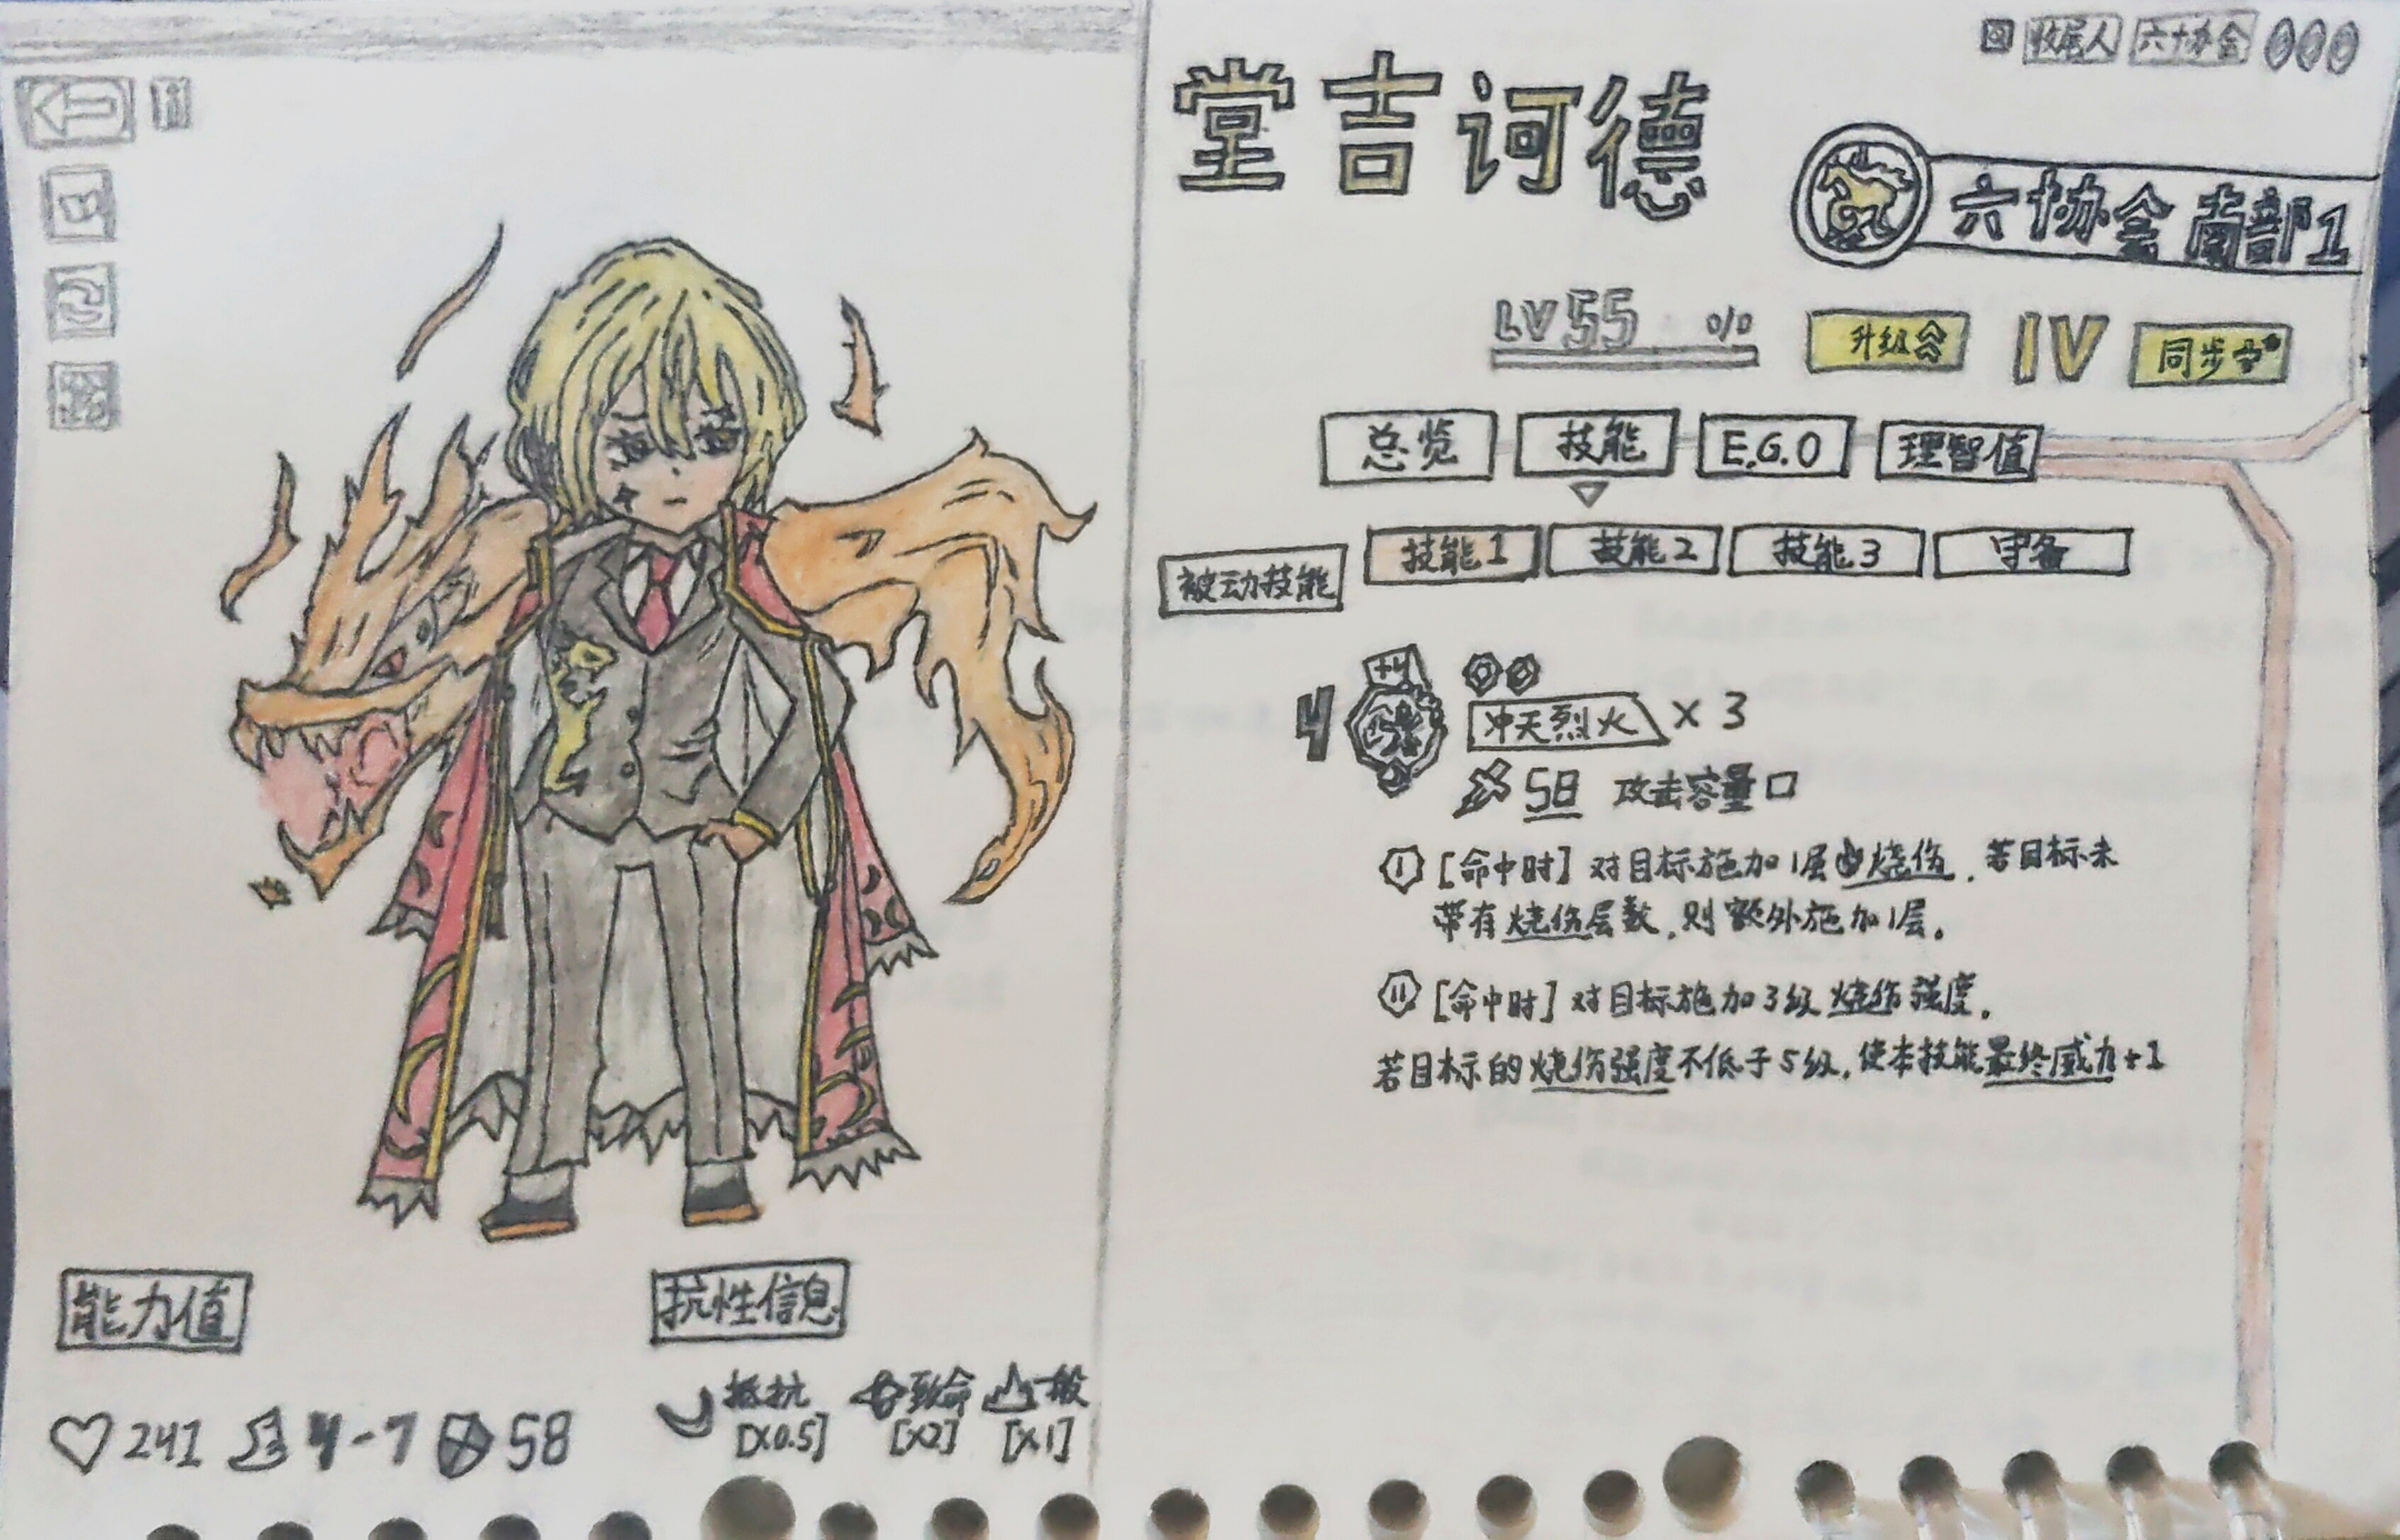 收尾人 六协会
堂吉诃德
六协会南部1
LV 55 % 升级 IV 同步
总览 技能 E.G.O 理智值
被动技能 技能1 技能2 技能3 守备
+4
4 冲天烈火 x 3
58 攻击容量口
I [命中时] 对目标施加1层烧伤,若目标未
带有烧伤层数,则额外施加1层。
II [命中时] 对目标施加3级烧伤强度。
若目标的烧伤强度不低于5级,使本技能最终威力+1
能力值 抗性信息
241 4-7 58
抵抗 致命 一般
[X0.5] [X2] [X1]